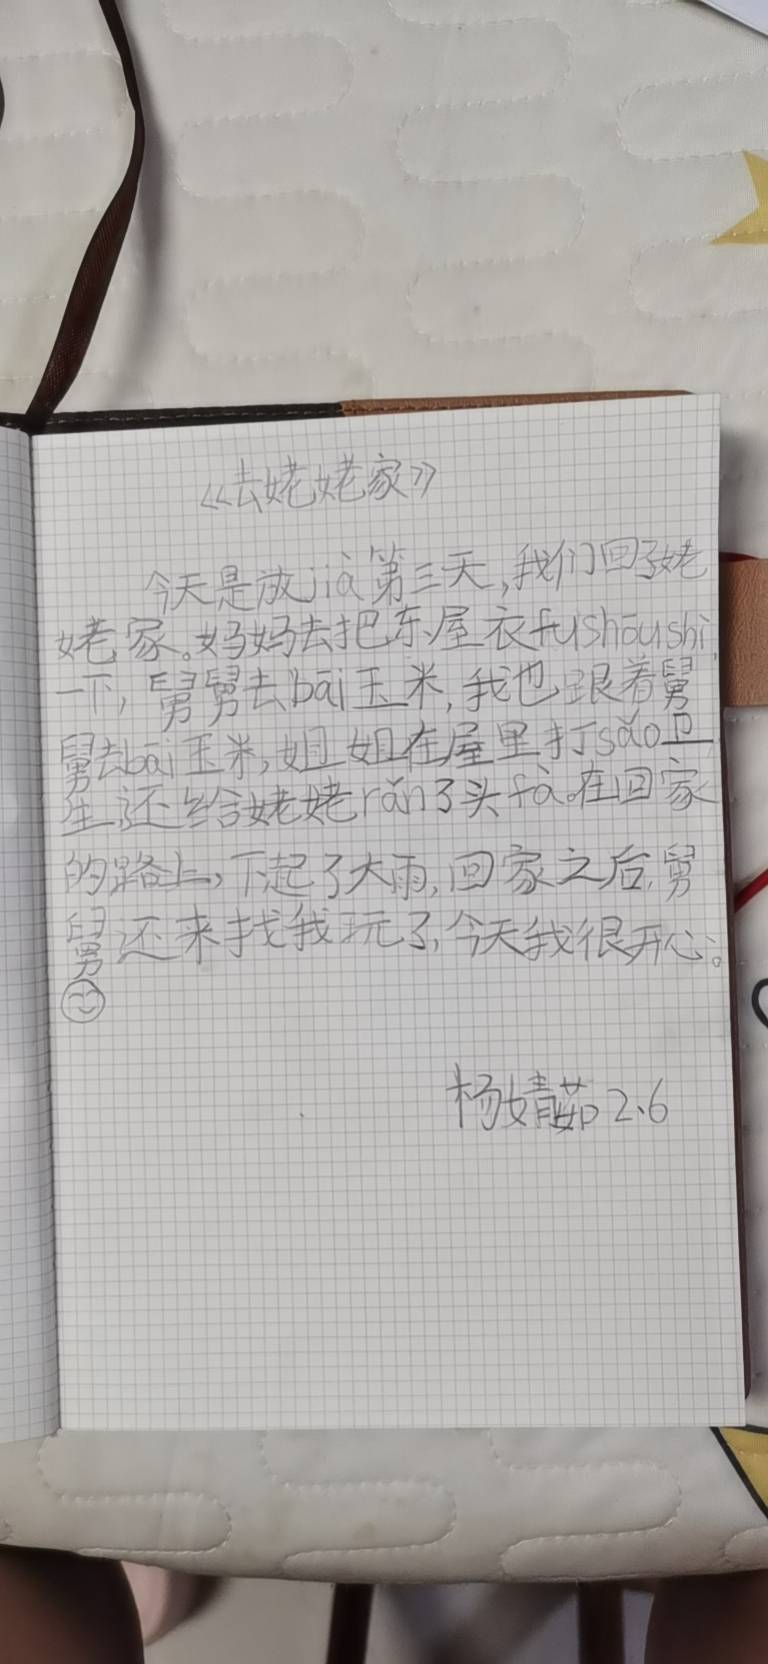 《去姥姥家》
今天是放jià第三天，我们回了姥
姥家。妈妈去把东屋衣fushōushi
一下，舅舅去bāi玉米，我也跟着舅
舅去bāi玉米，姐姐在屋里打sǎo卫
生，还给姥姥rǎn了头fà。在回家
的路上，下起了大雨，回家之后，舅
舅还来找我玩了，今天我很开心。
杨婧茹 2.6